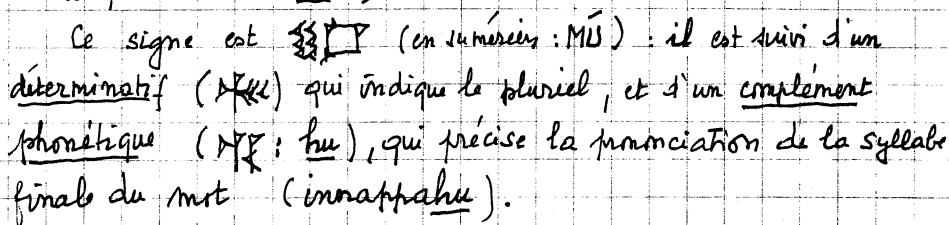 Ce signe est (en sumérien : MÚ) : il est suivi d'un
déterminatif ( ) qui indique le pluriel, et d'un complément
phonétique ( : hu), qui précise la prononciation de la syllabe
finale du mot (innappahu).